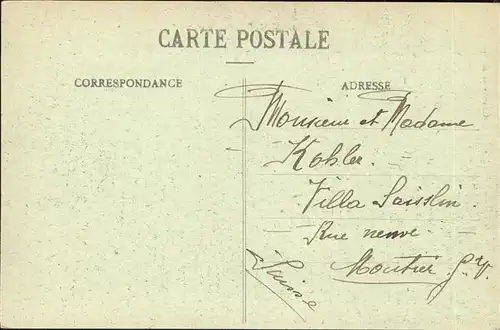 CARTE POSTALE
CORRESPONDANCE
ADRESSE
Monsieur et Madame
Kohler.
Villa Saisslin.
Rue neuve
Moutier
Suisse